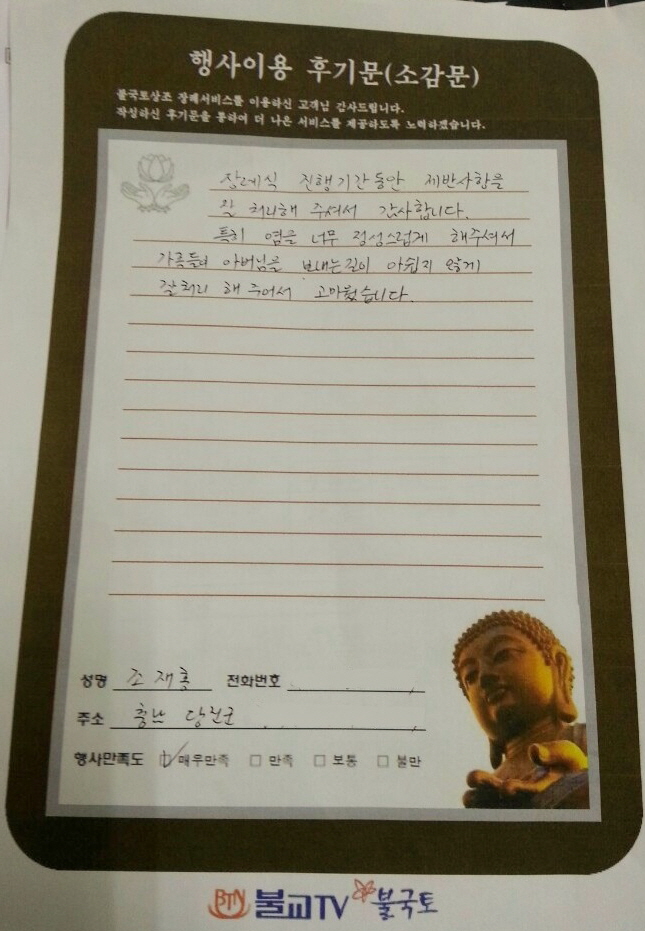 행사이용 후기문(소감문)
불국토상조 장례서비스를 이용하신 고객님 감사드립니다.
작성하신 후기문을 통하여 더 나은 서비스를 제공하도록 노력하겠습니다.
장례식 진행기간동안 제반사항을
잘 처리해 주셔서 감사합니다.
특히 염을 너무 정성스럽게 해주셔서
가족들이 아버님을 보내는길이 아쉽지 않게
잘처리 해 주어서 고마웠습니다.
성명 조재홍 전화번호
주소 충남 당진군
행사만족도 ☑ 매우만족 □ 만족 □ 보통 □ 불만
BTN 불교TV 불국토